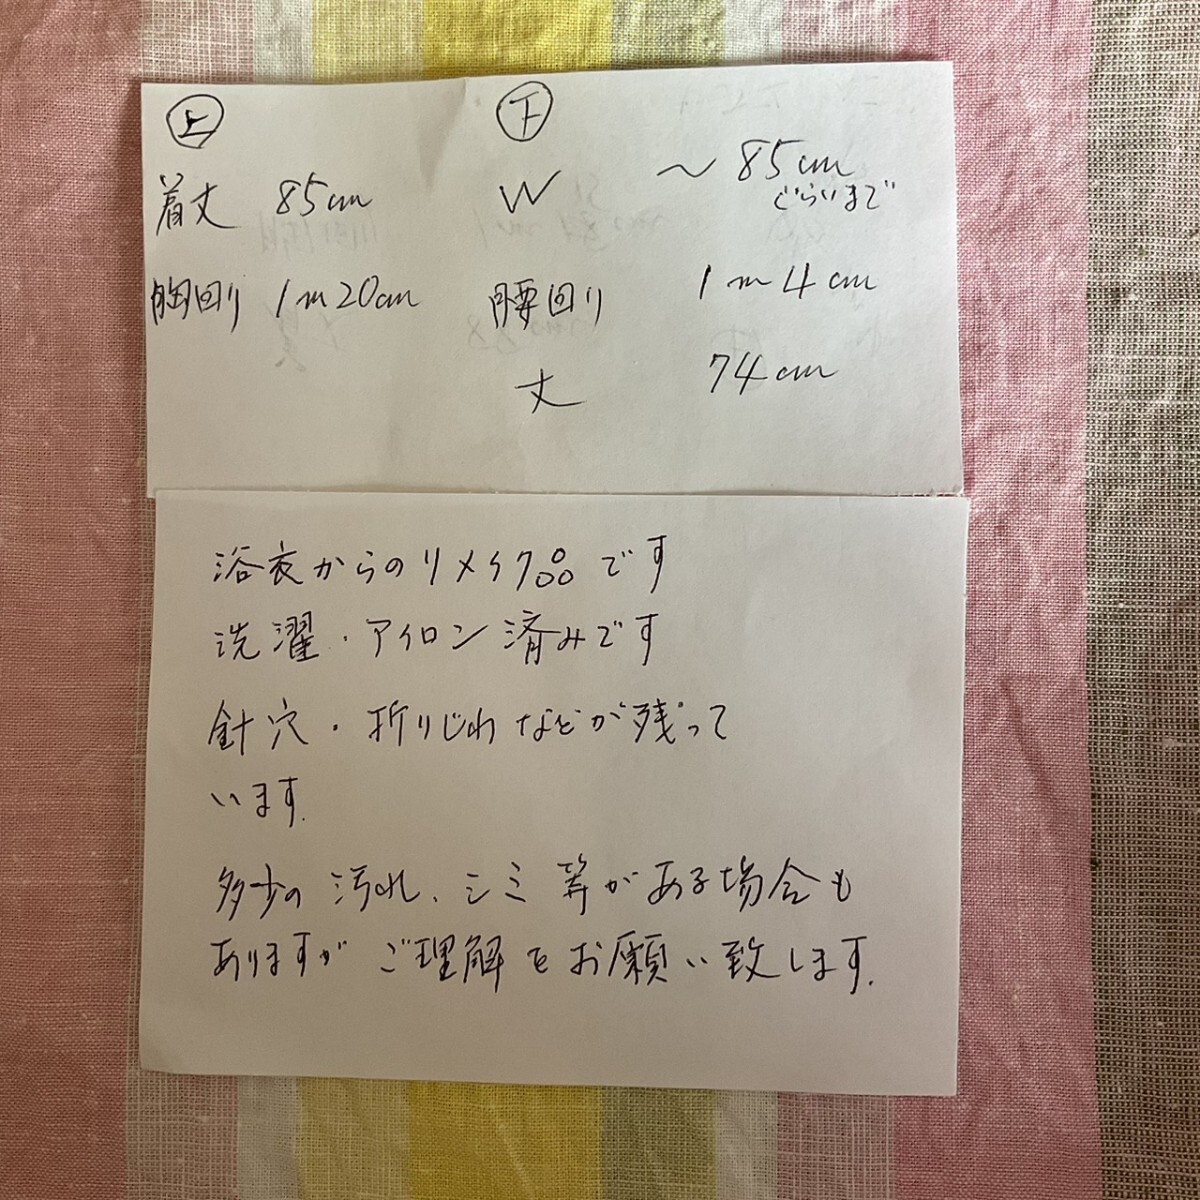 上
着丈 85cm
胸回り 1m20cm
下
W ～85cm
ぐらいまで
腰回り 1m4cm
丈 74cm
浴衣からのリメイク品です
洗濯・アイロン済みです
針穴・折りじわなどが残って
います.
多少の汚れ、シミ等がある場合も
ありますが ご理解をお願い致します.